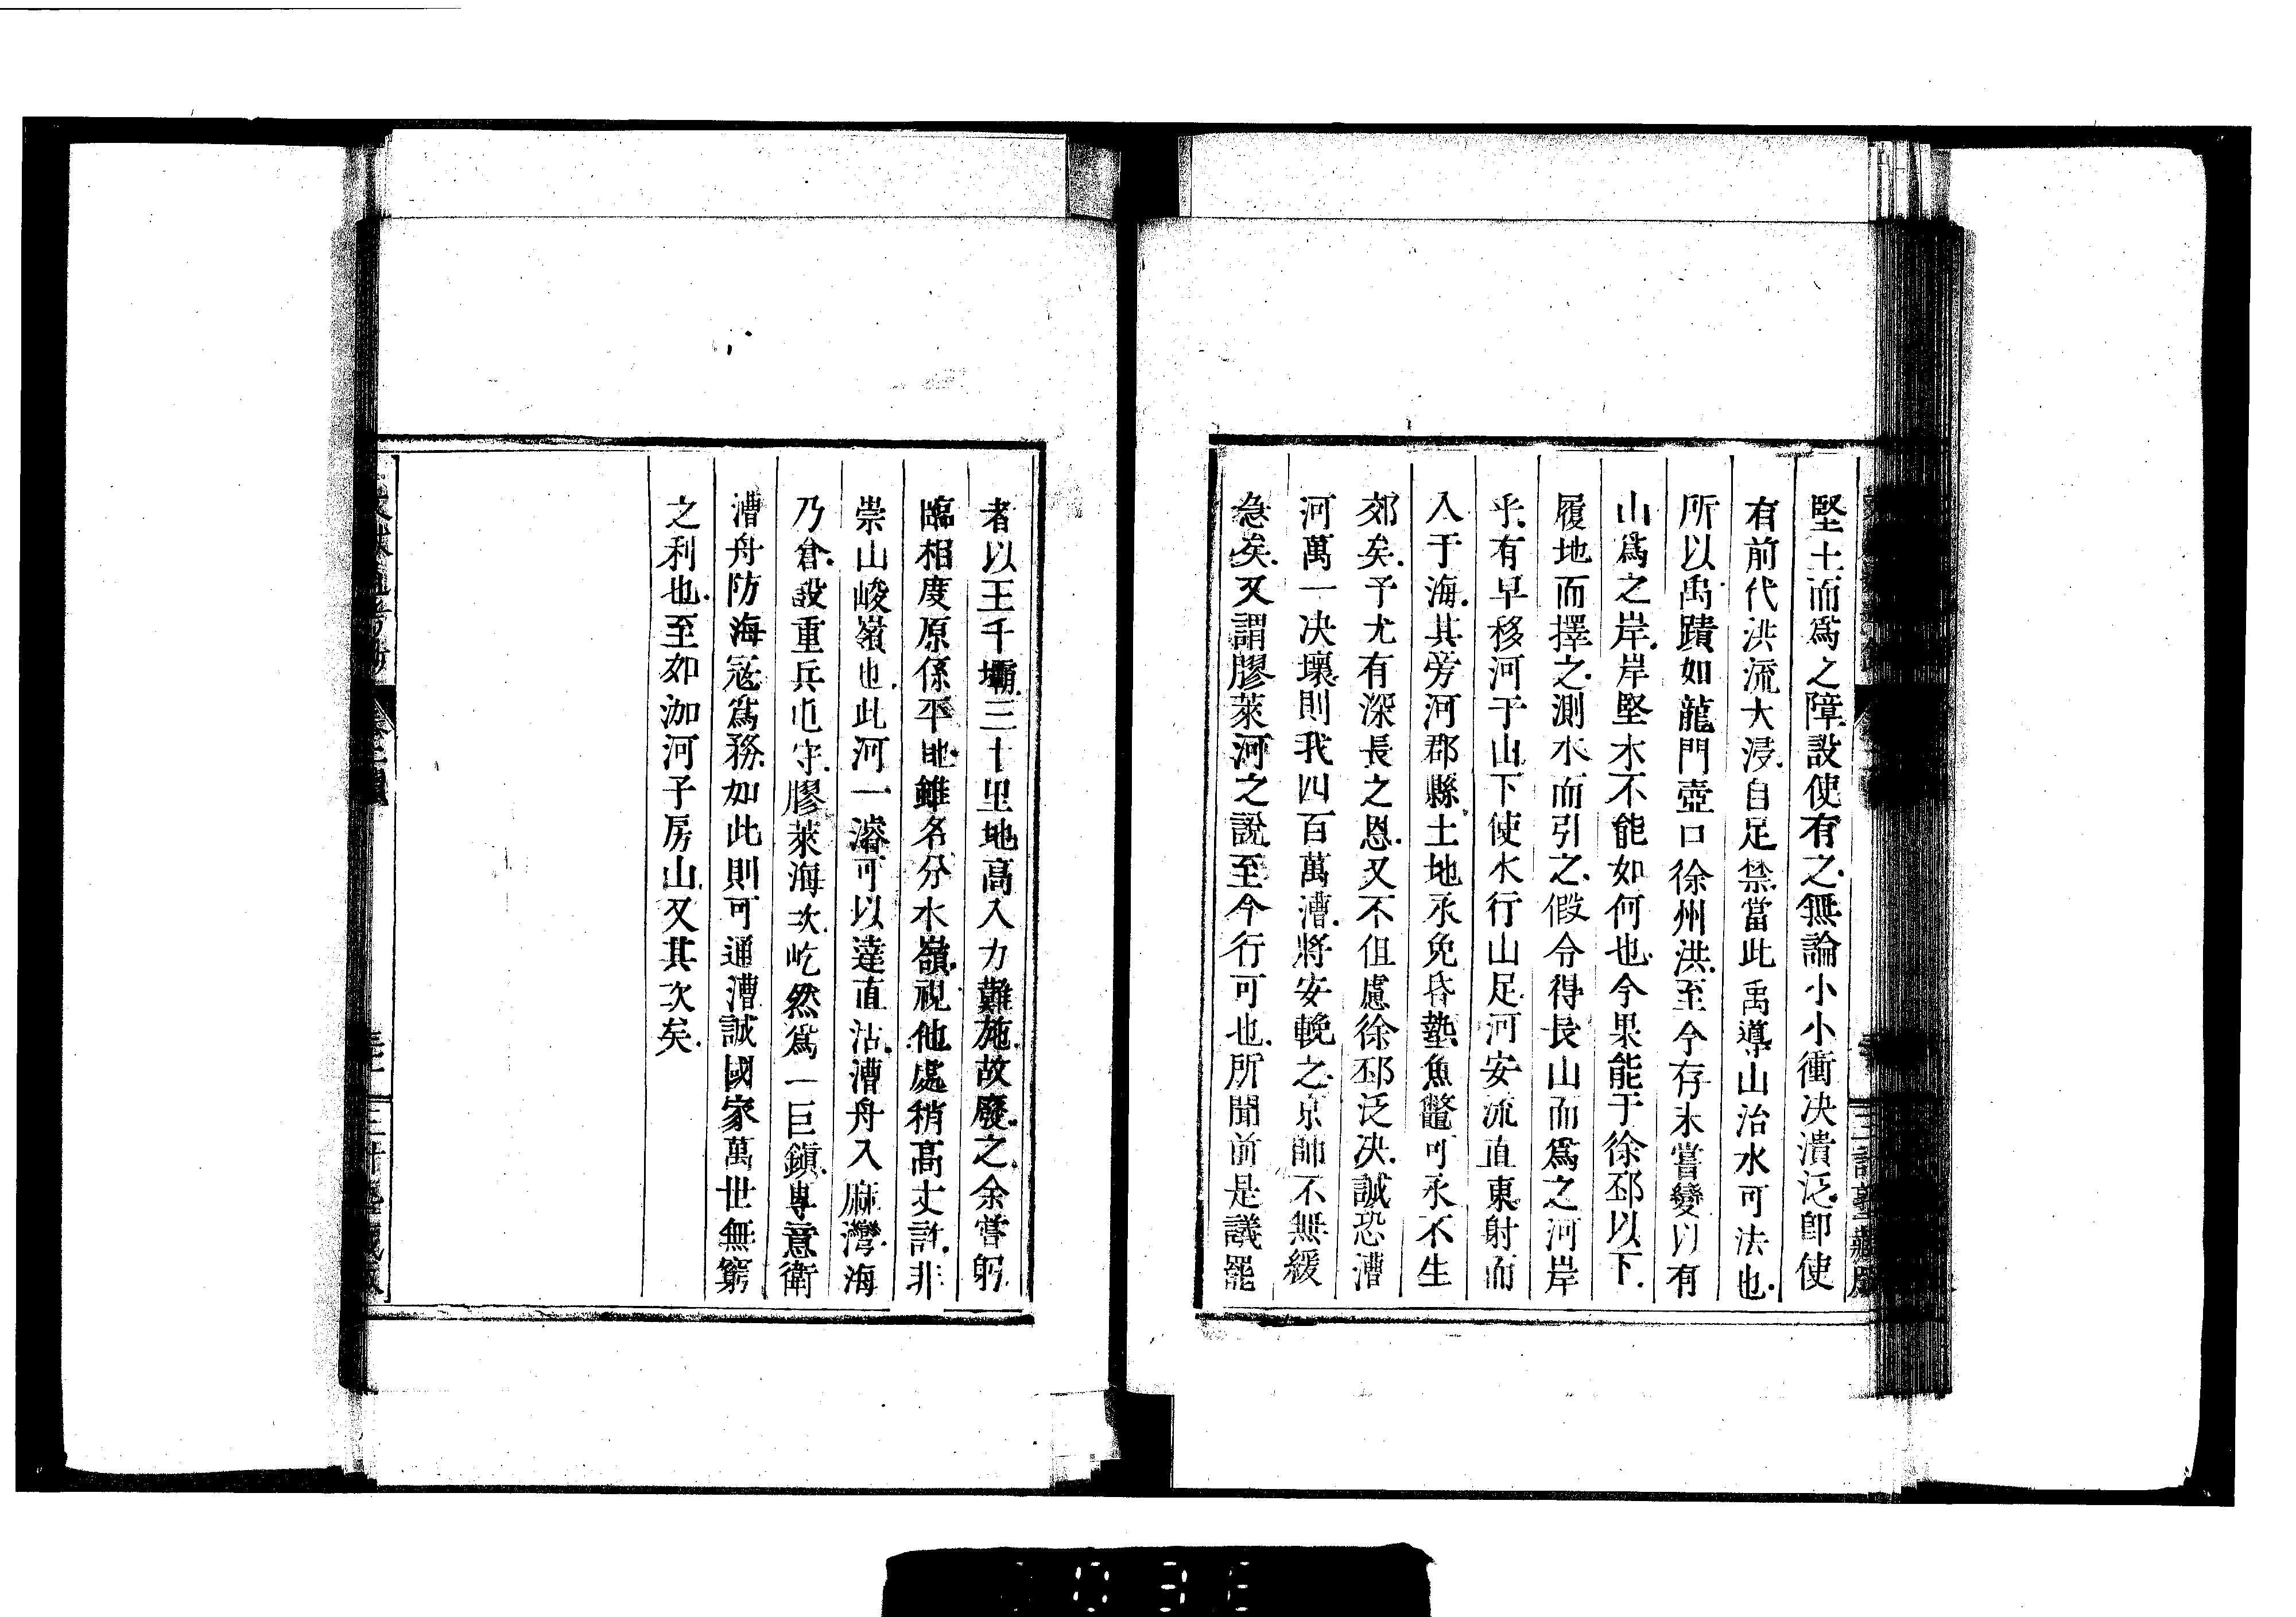 堅土而爲之障設使有之無論小小衝决潰泛卽使
有前代洪流大浸自足禁當此禹導山治水可法也
所以禹蹟如龍門壺口徐州洪至今存未嘗變以有
山爲之岸岸堅水不能如何也今果能于徐邳以下
履地而擇之測水而引之假令得長山而爲之河岸
乎有早移河于山下使水行山足河安流直東射而
入于海其旁河郡縣土地永免昏墊魚鼈可永不生
郊矣予尤有深長之恩又不但慮徐邳泛决誠恐漕
河萬一决壞則我四百萬漕將安輓之京師不無緩
急矣又謂膠萊河之說至今行可也所聞前是議罷
者以王千壩三十里地高入力難施故廢之余嘗躬
臨相度原係平地雖名分水嶺視他處稍高丈許非
崇山峻嶺也此河一濬可以達直沽漕舟入麻灣海
乃倉設重兵屯守膠萊海次屹然爲一巨鎭專意衛
漕舟防海寇爲務如此則可通漕誠國家萬世無窮
之利也至如泇河予房山又其次矣